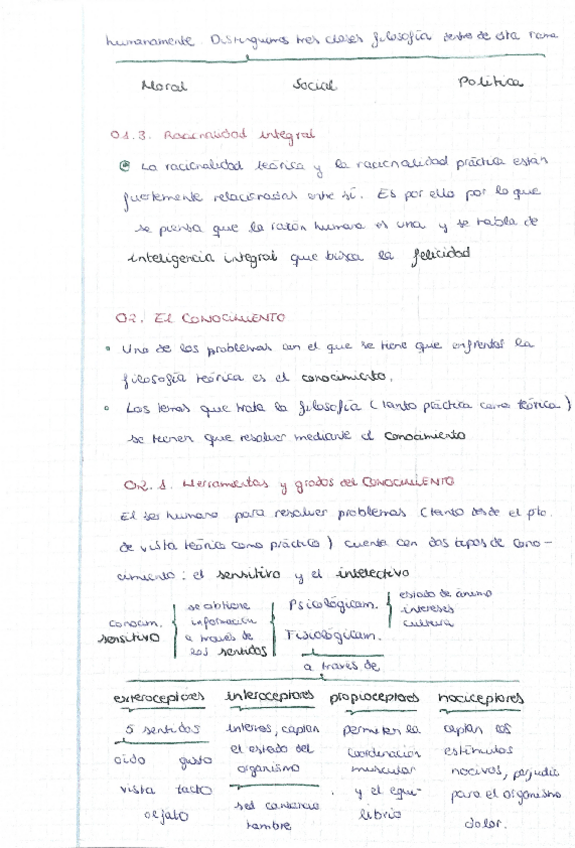 humanamente. Distinguimos tres clases filosofía dentro de esta rama
Moral Social Política
01.3. Racionalidad integral
La racionalidad teórica y la racionalidad práctica están
fuertemente relacionadas entre sí. Es por ello por lo que
se piensa que la razón humana es una y se habla de
inteligencia integral que busca la felicidad
02. EL CONOCIMIENTO
• Uno de los problemas con el que se tiene que enfrentar la
filosofía teórica es el conocimiento.
• Los temas que trata la filosofía (tanto práctica como teórica)
se tienen que resolver mediante el conocimiento
02.1. Herramientas y grados del CONOCIMIENTO
El ser humano para resolver problemas (tanto desde el pto.
de vista teórico como práctico) cuenta con dos tipos de cono-
cimiento: el sensitivo y el intelectivo
conocim.
sensitivo
se obtiene
información
a través de
los sentidos
Psicológicam.
Fisiológicam.
estado de ánimo
intereses
cultura
a través de
exteroceptores interoceptores propioceptores nociceptores
5 sentidos
oído gusto
vista tacto
olfato
internos, captan
el estado del
organismo
sed cansancio
hambre
permiten la
coordinación
muscular
y el equi-
librio
captan los
estímulos
nocivos, perjudic
para el organismo
dolor.